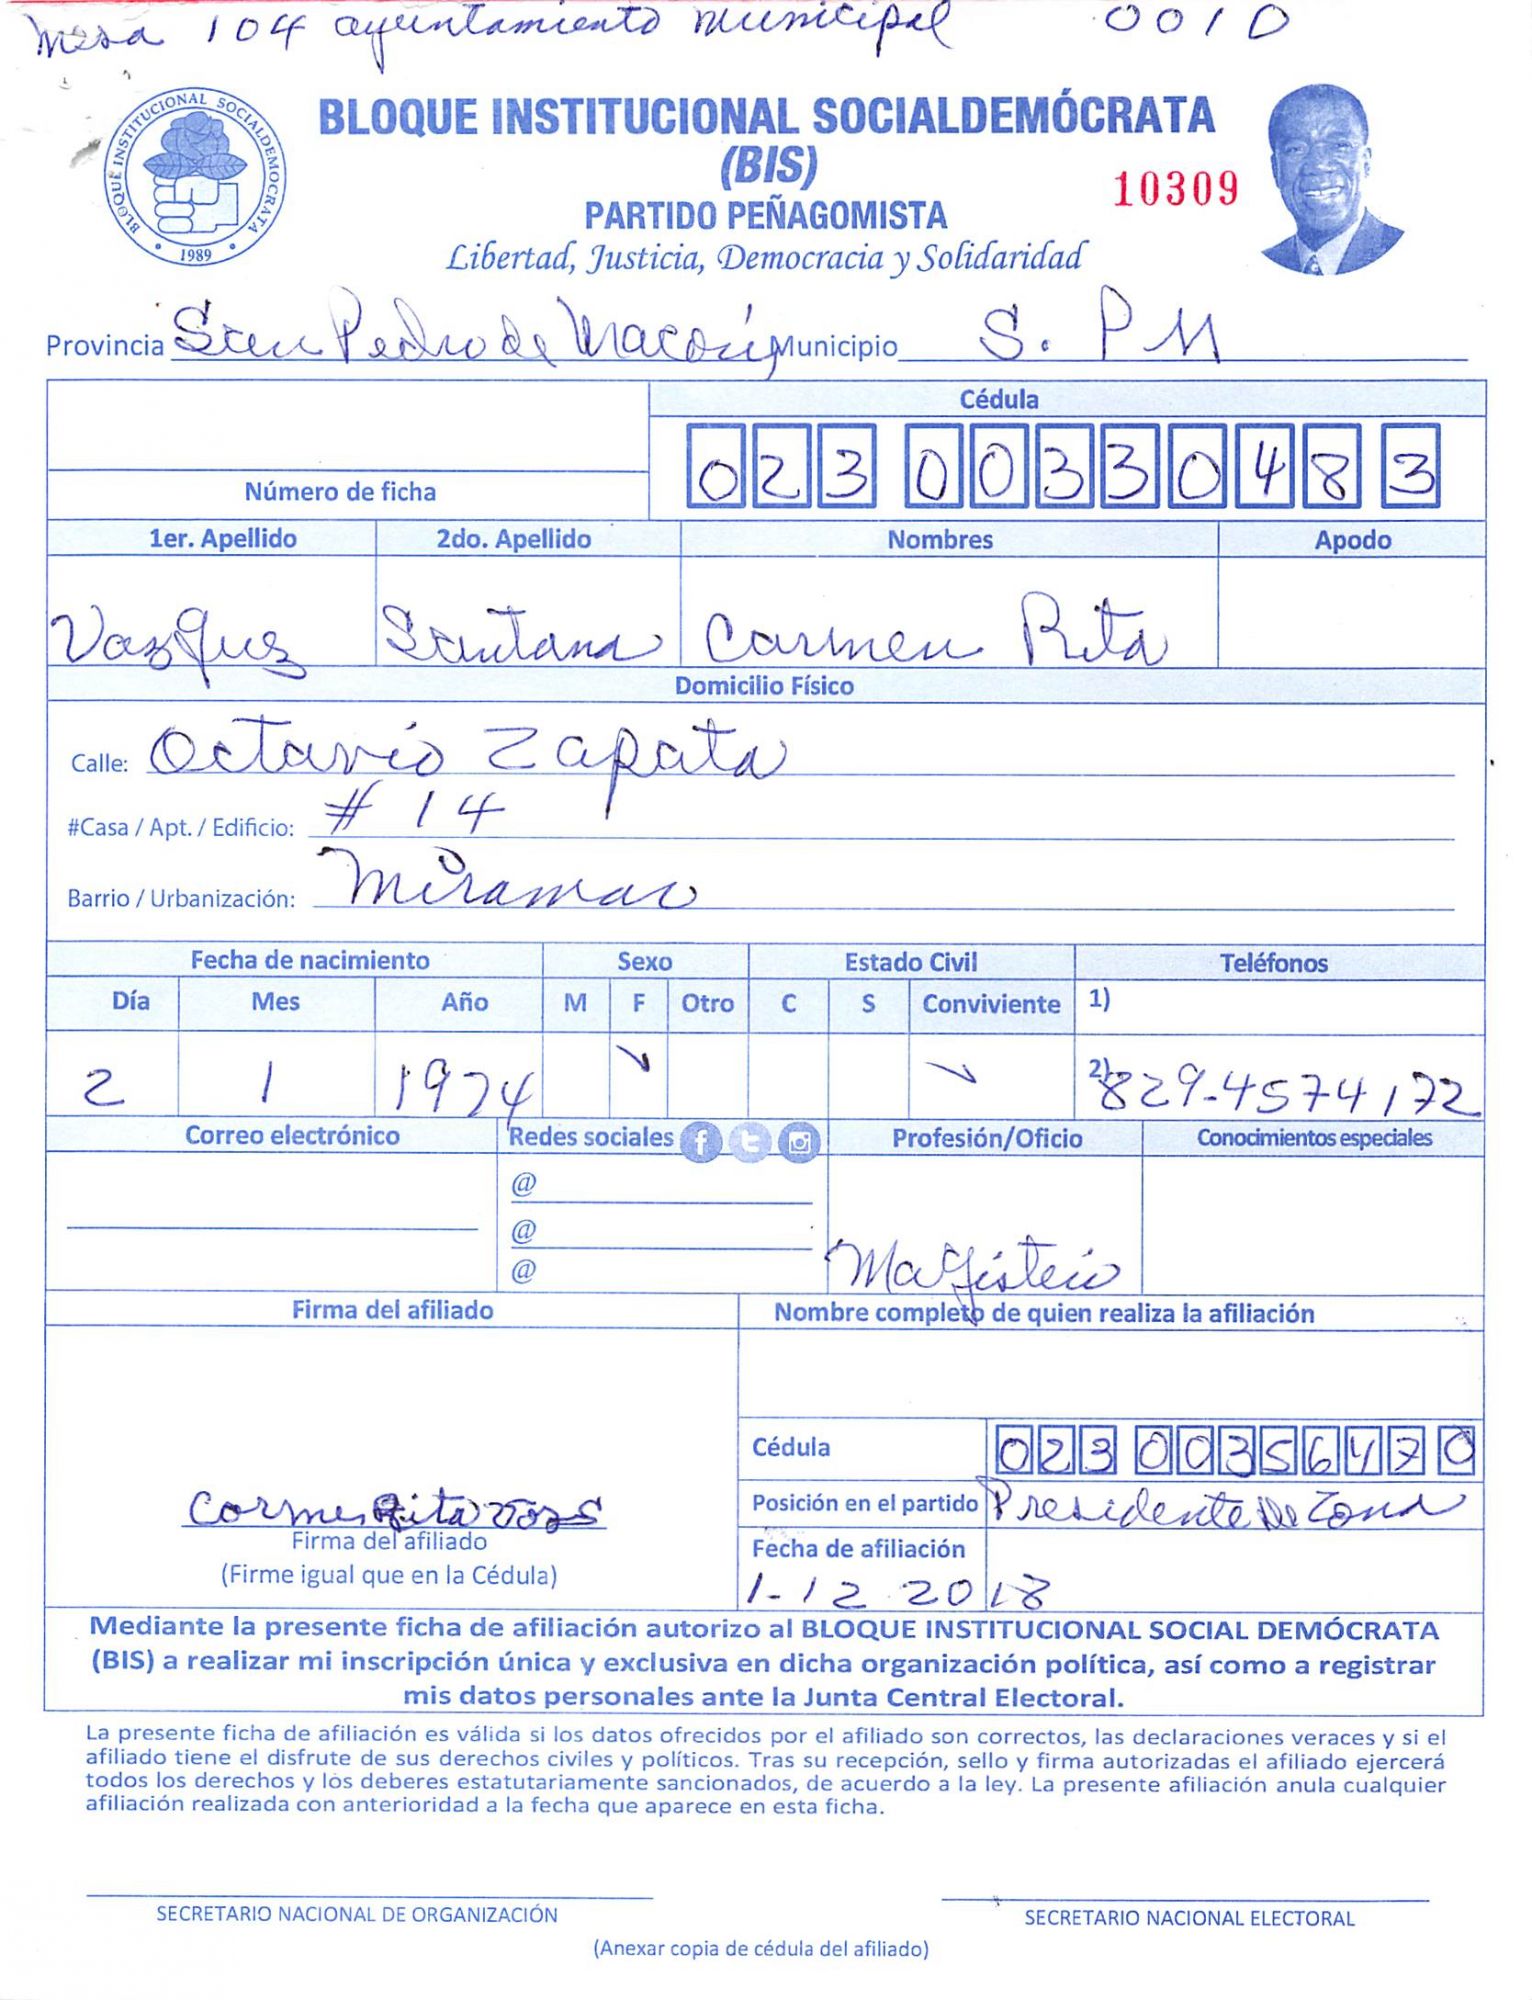 Mesa 104 ayuntamiento Municipal 0010
BLOQUE INSTITUCIONAL SOCIALDEMOCRATA
1989
BLOQUE INSTITUCIONAL SOCIALDEMÓCRATA
(BIS)
10309
PARTIDO PEÑAGOMISTA
Libertad, Justicia, Democracia y Solidaridad
Provincia San Pedro de Macorís Municipio S. P M
Cédula
023 0033048 3
Número de ficha
1er. Apellido 2do. Apellido Nombres Apodo
Vazquez Santana Carmen Rita
Domicilio Físico
Calle: Octavio Zapata
#Casa / Apt. / Edificio: # 14
Barrio / Urbanización: Miramar
Fecha de nacimiento Sexo Estado Civil Teléfonos
Día Mes Año M F Otro C S Conviviente 1)
2 1 1974 ✓ ✓ 2) 829-4574172
Correo electrónico Redes sociales Profesión/Oficio Conocimientos especiales
@
@
@ Magisterio
Firma del afiliado Nombre completo de quien realiza la afiliación
Cédula 023 0035647 0
Posición en el partido Presidente De Zona
Carmen Rita
Firma del afiliado
Fecha de afiliación
(Firme igual que en la Cédula)
1-12 2018
Mediante la presente ficha de afiliación autorizo al BLOQUE INSTITUCIONAL SOCIAL DEMÓCRATA
(BIS) a realizar mi inscripción única y exclusiva en dicha organización política, así como a registrar
mis datos personales ante la Junta Central Electoral.
La presente ficha de afiliación es válida si los datos ofrecidos por el afiliado son correctos, las declaraciones veraces y si el
afiliado tiene el disfrute de sus derechos civiles y políticos. Tras su recepción, sello y firma autorizadas el afiliado ejercerá
todos los derechos y los deberes estatutariamente sancionados, de acuerdo a la ley. La presente afiliación anula cualquier
afiliación realizada con anterioridad a la fecha que aparece en esta ficha.
SECRETARIO NACIONAL DE ORGANIZACIÓN SECRETARIO NACIONAL ELECTORAL
(Anexar copia de cédula del afiliado)